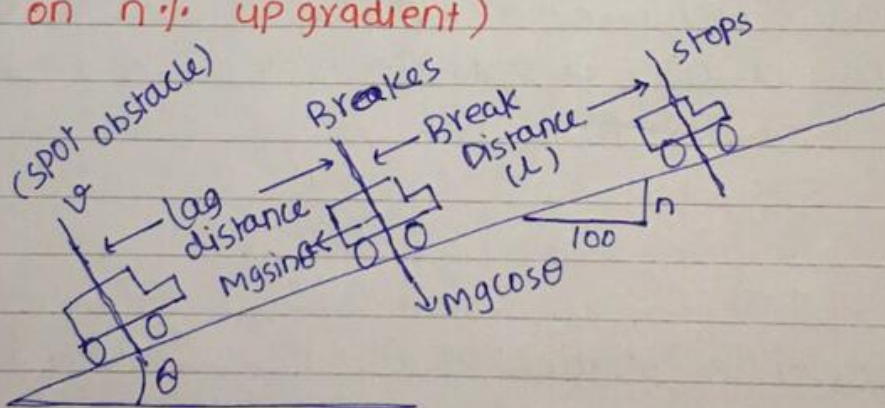 on n% up gradient)
(spot obstacle)
v
Lag
distance
Breakes
Break
Distance
(l)
stops
Mgsinθ
Mgcosθ
n
100
θ